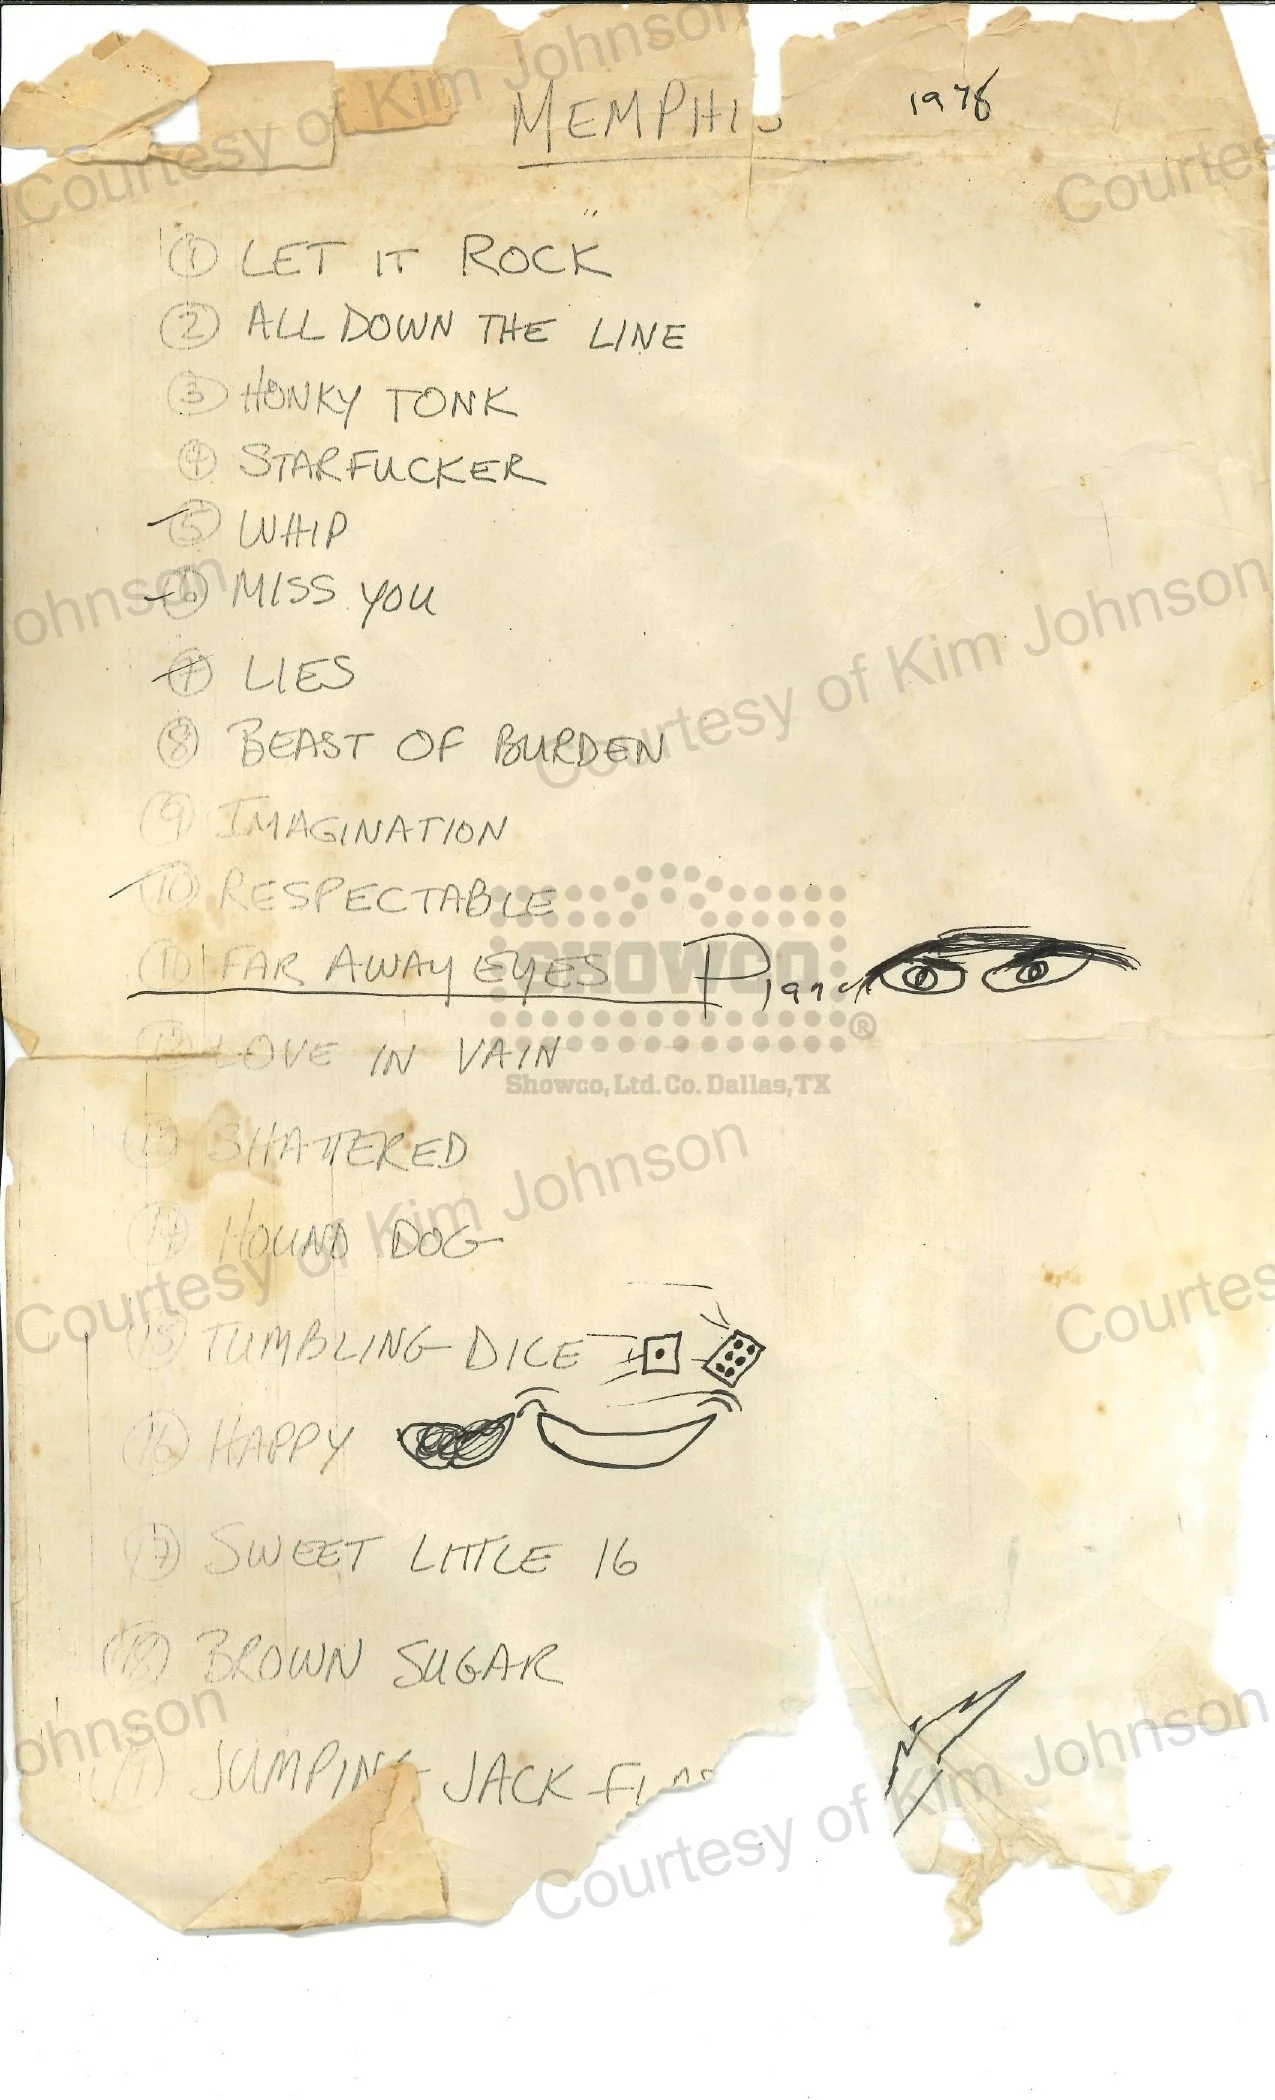 MEMPHIS 1978
1 LET IT ROCK
2 ALL DOWN THE LINE
3 HONKY TONK
4 STARFUCKER
5 WHIP
6 MISS YOU
7 LIES
8 BEAST OF BURDEN
9 IMAGINATION
10 RESPECTABLE
11 FAR AWAY EYES Piano
SHOWCO®
12 LOVE IN VAIN
Showco, Ltd. Co. Dallas, TX
13 SHATTERED
14 HOUND DOG
15 TUMBLING DICE
16 HAPPY
17 SWEET LITTLE 16
18 BROWN SUGAR
19 JUMPING JACK FLAS
Courtesy of Kim Johnson
Courtes
ohnson
Courtesy of Kim Johnson
Courtesy of Kim Johnson
Courtes
ohnson
Courtesy of Kim Johnson